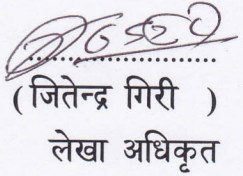 (जितेन्द्र गिरी )
लेखा अधिकृत